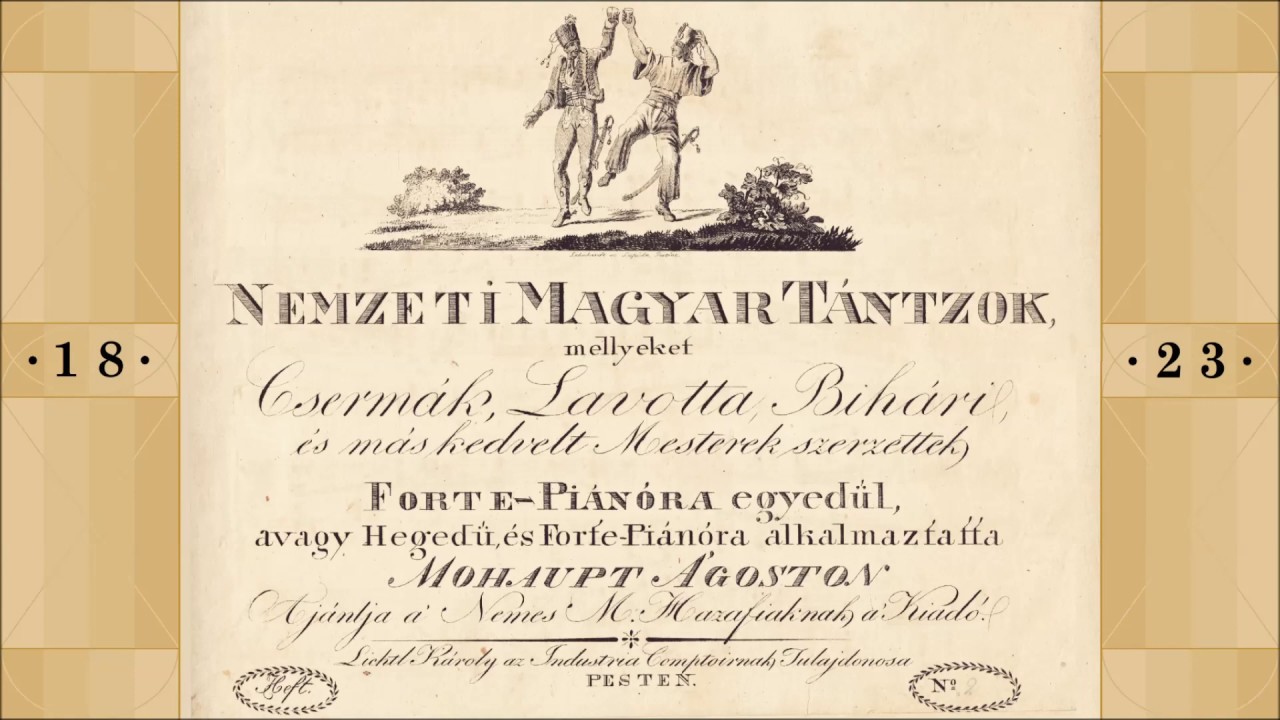 NEMZETI MAGYAR TÁNTZOK,
mellyeket
Csermák, Lavotta, Bihári,
és más kedvelt Mesterek szerzettek,
FORTE-PIÁNÓRA egyedűl,
avagy Hegedű, és Forte-Piánóra alkalmaztatta
MOHAUPT ÁGOSTON
Ajánlja a' Nemes M. Hazafiaknak, a' Kiadó.
Lichtl Károly az Industria Comptoirnak Tulajdonosa
PESTEN.
Heft.
Nº 2
· 1 8 ·
· 2 3 ·